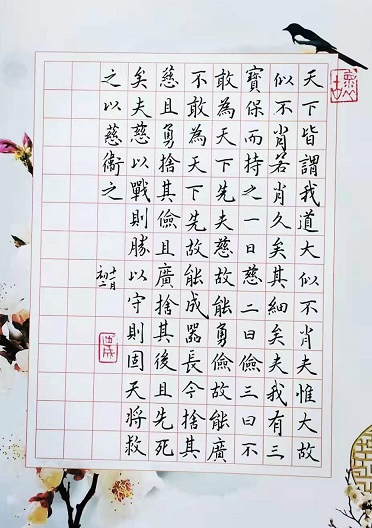 天下皆謂我道大似不肖夫惟大故
似不肖若肖久矣其細矣夫我有三
寶保而持之一曰慈二曰儉三曰不
敢為天下先夫慈故能勇儉故能廣
不敢為天下先故能成器長今捨其
慈且勇捨其儉且廣捨其後且先死
矣夫慈以戰則勝以守則固天將救
之以慈衛之
初二